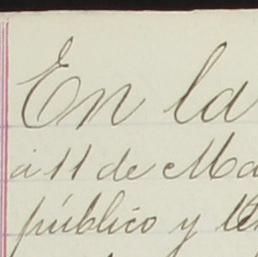 En la
á 11 de Ma
público y